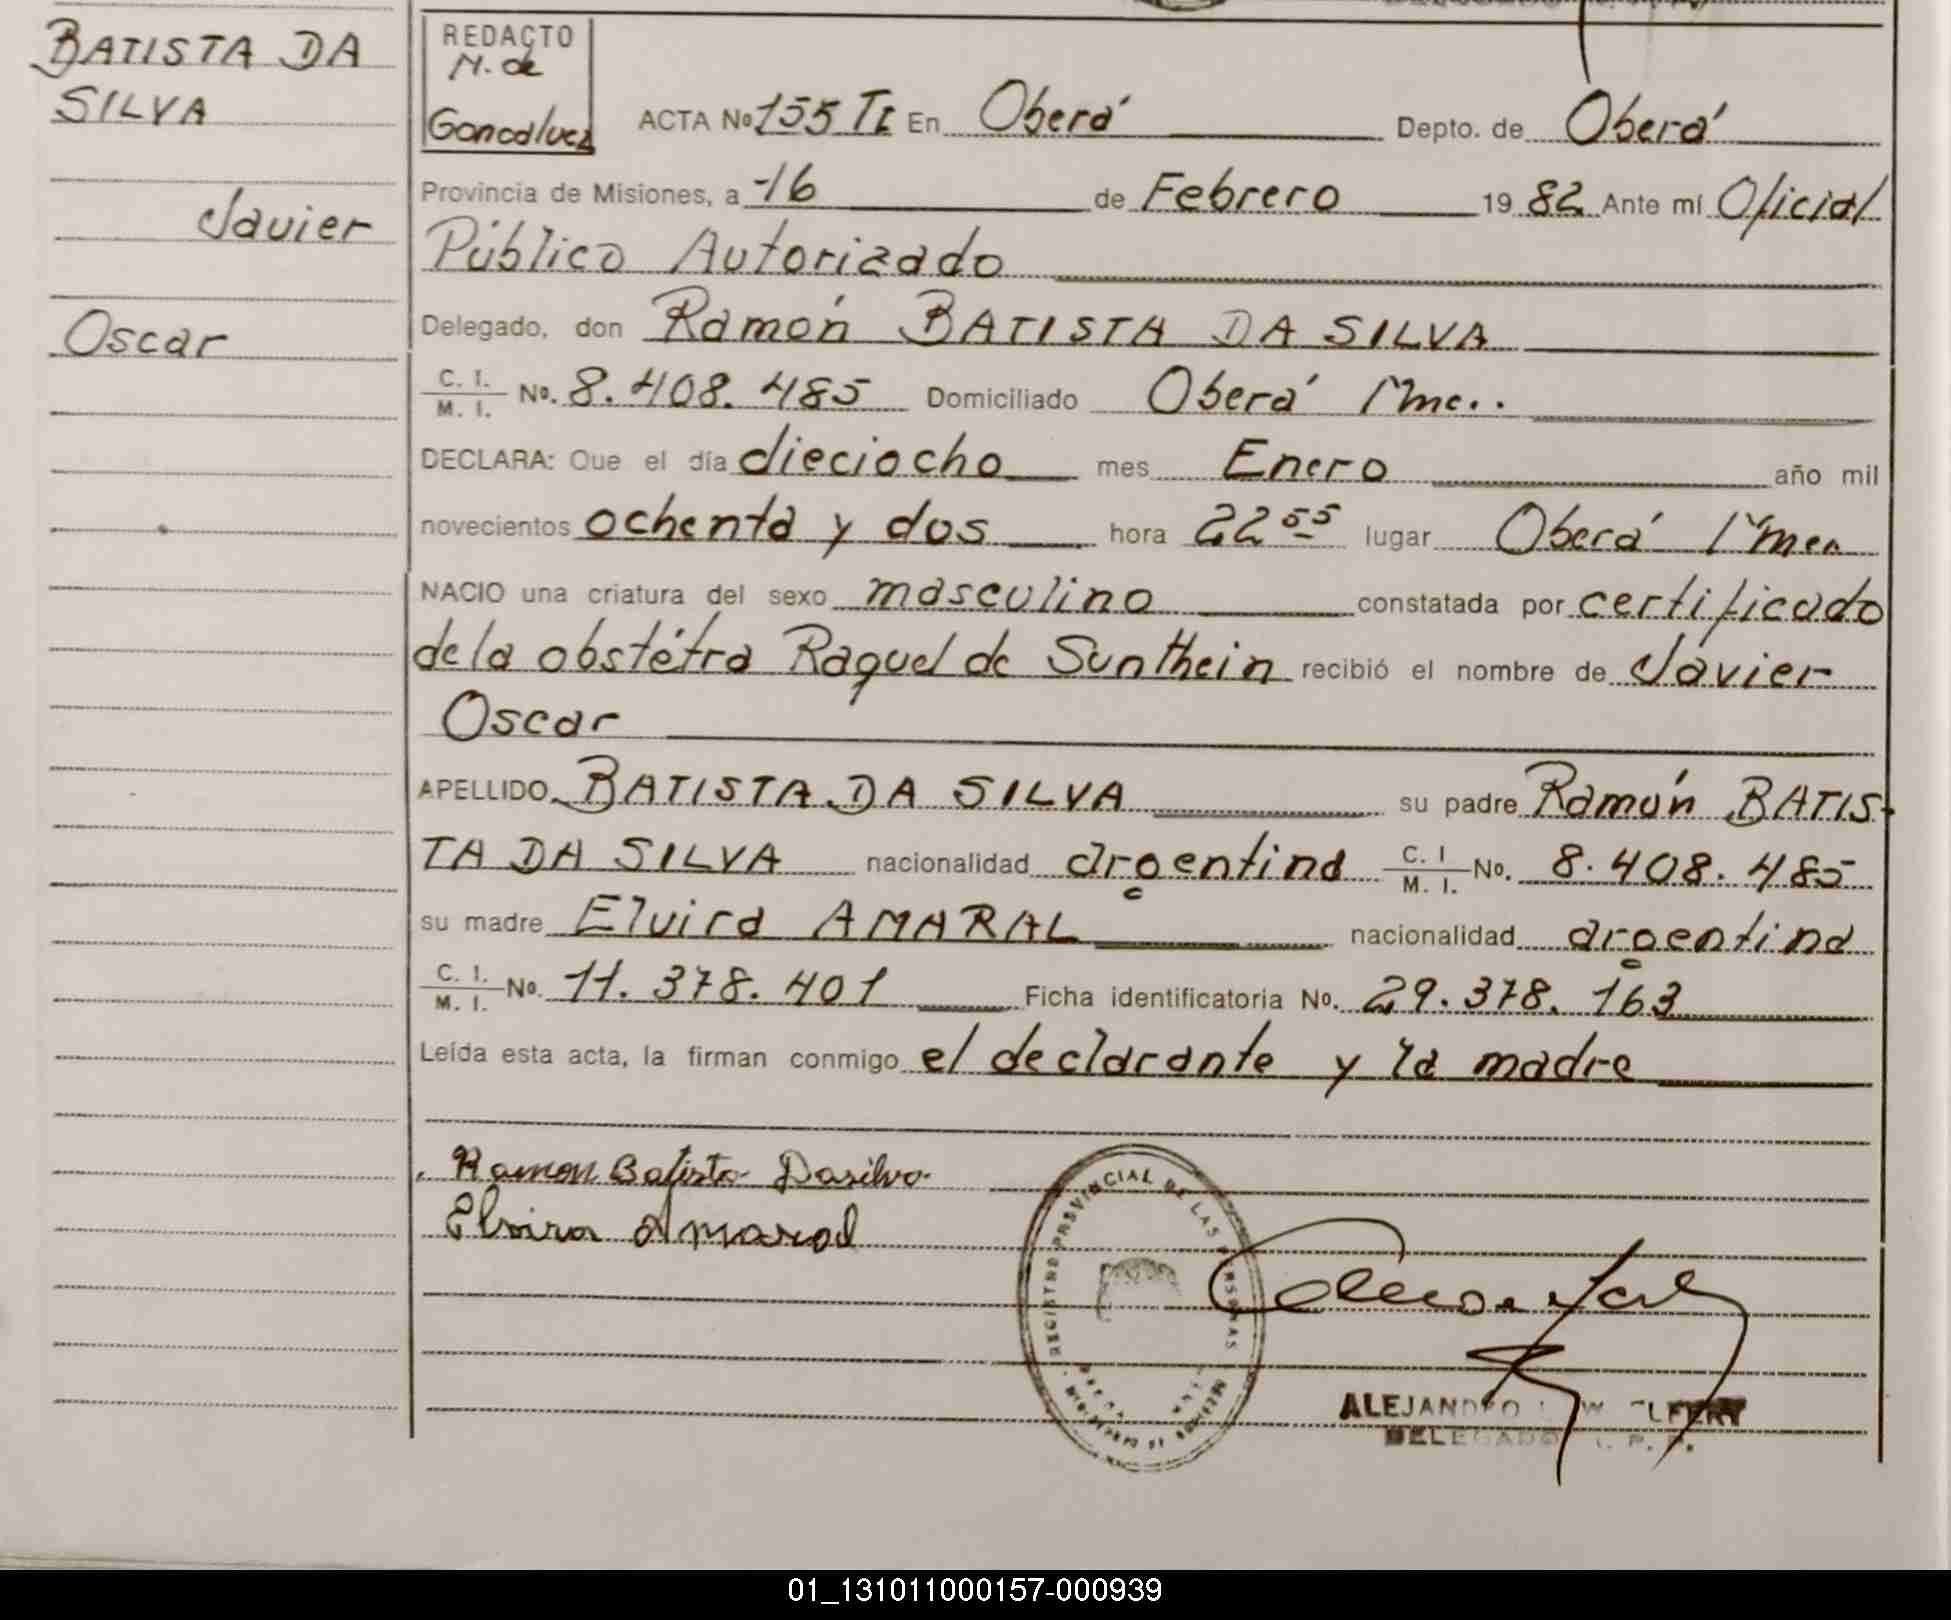 BATISTA DA
SILVA
Javier
Oscar
REDACTO
N. de
Goncalvez
ACTA Nº 155 TI En Oberá Depto. de Oberá
Provincia de Misiones, a -16 de Febrero 19 82 Ante mí Oficial
Público Autorizado
Delegado, don Ramón BATISTA DA SILVA
C. I. M. I. Nº. 8.408.485 Domiciliado Oberá
DECLARA: Que el día dieciocho mes Enero año mil
novecientos ochenta y dos hora 22 55 lugar Oberá
NACIO una criatura del sexo masculino constatada por certificado
de la obstétra Raquel de Sunthein recibió el nombre de Javier
Oscar
APELLIDO BATISTA DA SILVA su padre Ramón BATIS-
TA DA SILVA nacionalidad argentina C. I M. I. No. 8.408.485
su madre Elvira AMARAL nacionalidad argentina
C. I. M. I. Nº. 11.378.401 Ficha identificatoria No. 29.378.163
Leída esta acta, la firman conmigo el declarante y la madre
Ramon Batista Dasilva
Elvira Amaral
REGISTRO PROVINCIAL DE LAS PERSONAS
ALEJANDRO
DELEGADO R. P. P.
01_131011000157-000939